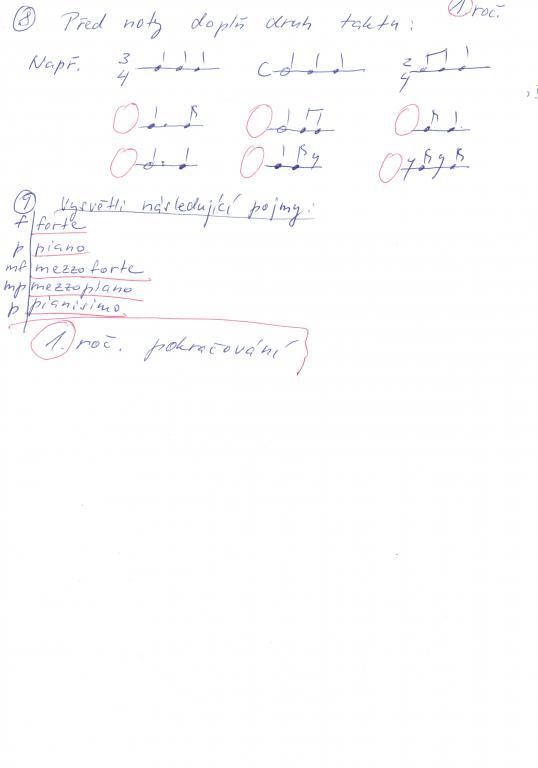 1. roč.
8 Před noty doplň druh taktu:
Např. 3/4 C 2/4
9 Vysvětli následující pojmy:
f forte
p piano
mf mezzoforte
mp mezzopiano
p pianisimo.
1. roč. pokračování